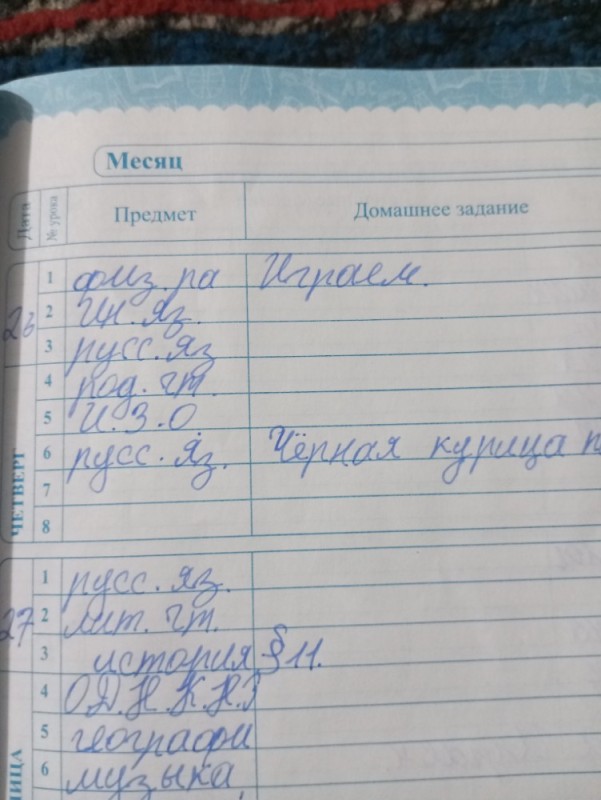 Месяц
Дата № урока Предмет Домашнее задание
26 ЧЕТВЕРГ
1 физ.ра Играем.
2 Ин. яз.
3 русс. яз
4 род. чт.
5 И.З.О.
6 русс. яз. Чёрная курица
7
8
27
1 русс. яз.
2 лит. чт.
3 история § 11.
4 О.Д.Н.К.Н.Р
5 географи
6 музыка